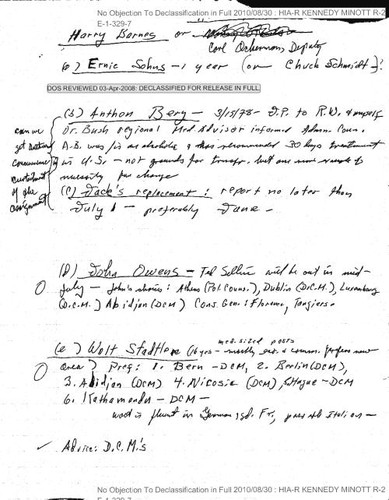 No Objection To Declassification in Full 2010/08/30 : HIA-R KENNEDY MINOTT R-2
E-1-329-7
Harry Barnes or
Carl Deputy
(a) Ernie Sohns - 1 year (or Chuck Schmidt)?
DOS REVIEWED 03-Apr-2008: DECLASSIFIED FOR RELEASE IN FULL
(b) Anthon Berg - D.P. to R.K. & myself
Dr. Bush regional Med Advisor informed Adm. Coun.
A.B. was alcoholic & thus recommended 30 days treatment
in U.S. - not grounds for transfer, but one more
necessity for change
can we get
of the assignment
(c) Jack's replacement: report no later than
July 1 - preferably June -
(d) John Owens - Ted Sellin will be out in mid-
July - John's choices: Athens (Pol. Couns.), Dublin (D.C.M.), Luxembourg
(D.C.M.) Abidjan (DCM) Cons. Gen: Florence, Tangiers.
med. sized posts
(e) Walt Stadtler (16 yrs - mostly new
area) Preg: 1. Bern - DCM, 2. Berlin (DCM),
3. Abidjan (DCM) 4. Nicosia (DCM), Hague - DCM
6. Kathmandu - DCM -
Walt is fluent in German, Fr, Italian -
✓ Advice: D.C.M's
No Objection To Declassification in Full 2010/08/30 : HIA-R KENNEDY MINOTT R-2
E-1-329-7